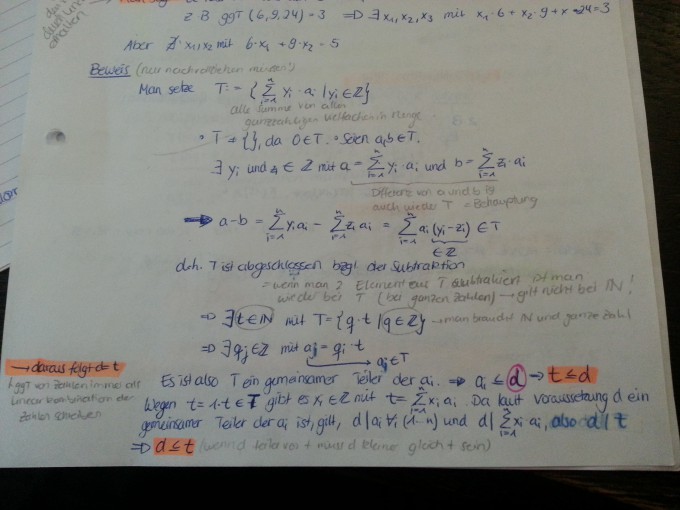 z B ggT (6,9,24) = 3 => ∃ x₁, x₂, x₃ mit x₁·6 + x₂·9 + x₃·24=3
Aber ∄ x₁, x₂ mit 6·x₁ + 9·x₂ = 5
Beweis (nur nachvollziehen müssen!)
Man setze T := { Σ_{i=1}^{n} yᵢ·aᵢ | yᵢ ∈ ℤ }
alle Summe von allen
ganzzahligen Vielfachen in Menge
T ≠ {}, da 0∈T. Seien a,b∈T.
∃ yᵢ und zᵢ ∈ ℤ mit a = Σ_{i=1}^{n} yᵢ·aᵢ und b = Σ_{i=1}^{n} zᵢ·aᵢ
Differenz von a und b ist
auch wieder T = Behauptung
=> a-b = Σ_{i=1}^{n} yᵢaᵢ - Σ_{i=1}^{n} zᵢaᵢ = Σ_{i=1}^{n} aᵢ(yᵢ-zᵢ) ∈ T
∈ ℤ
d.h. T ist abgeschlossen bzgl der Subtraktion
= wenn man 2 Element aus T subtrahiert ist man
wieder bei T (bei ganzen Zahlen) → gilt nicht bei ℕ!
=> ∃ t∈ℕ mit T = {q·t | q∈ℤ} → man braucht ℕ und ganze Zahl
=> ∃ qⱼ∈ℤ mit aⱼ = qⱼ·t
aⱼ ∈ T
→ daraus folgt d=t
ggT von Zahlen immer als
Linearkombination der
Zahlen schreiben
Es ist also T ein gemeinsamer Teiler der aᵢ. => aᵢ ≤ d → t ≤ d
Wegen t = 1·t ∈ T gibt es xᵢ ∈ ℤ mit t = Σ_{i=1}^{n} xᵢaᵢ. Da laut Voraussetzung d ein
gemeinsamer Teiler der aᵢ ist, gilt, d | aᵢ ∀i (1-n) und d | Σ_{i=1}^{n} xᵢ aᵢ, also d | t
=> d ≤ t (wenn d teiler von t muss d kleiner gleich t sein)